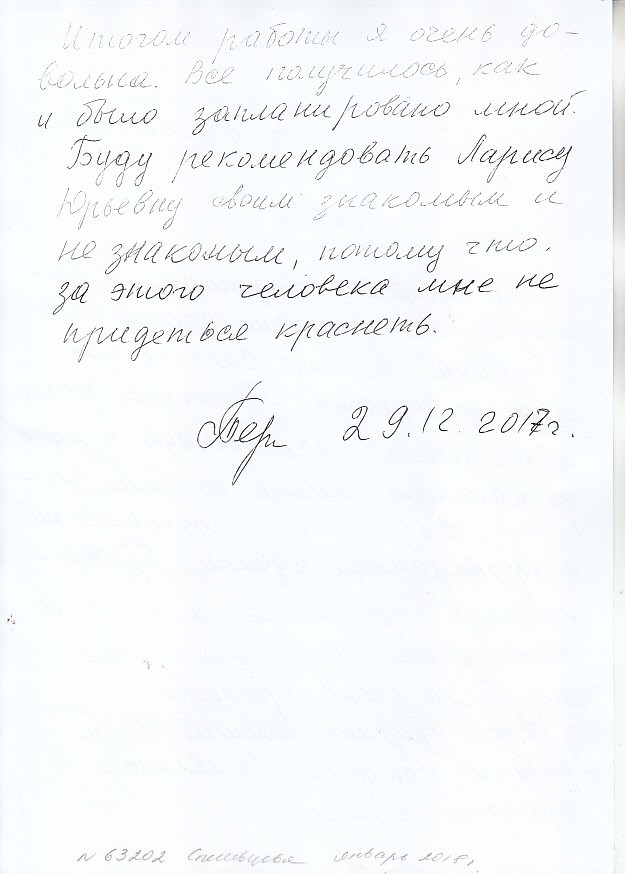 Итогом работы я очень до-
вольна. Все получилось, как
и было запланировано мной.
Буду рекомендовать Ларису
Юрьевну своим знакомым и
не знакомым, потому что.
за этого человека мне не
придеться краснеть.
29.12.2017г.
N 63202 январь 2018г